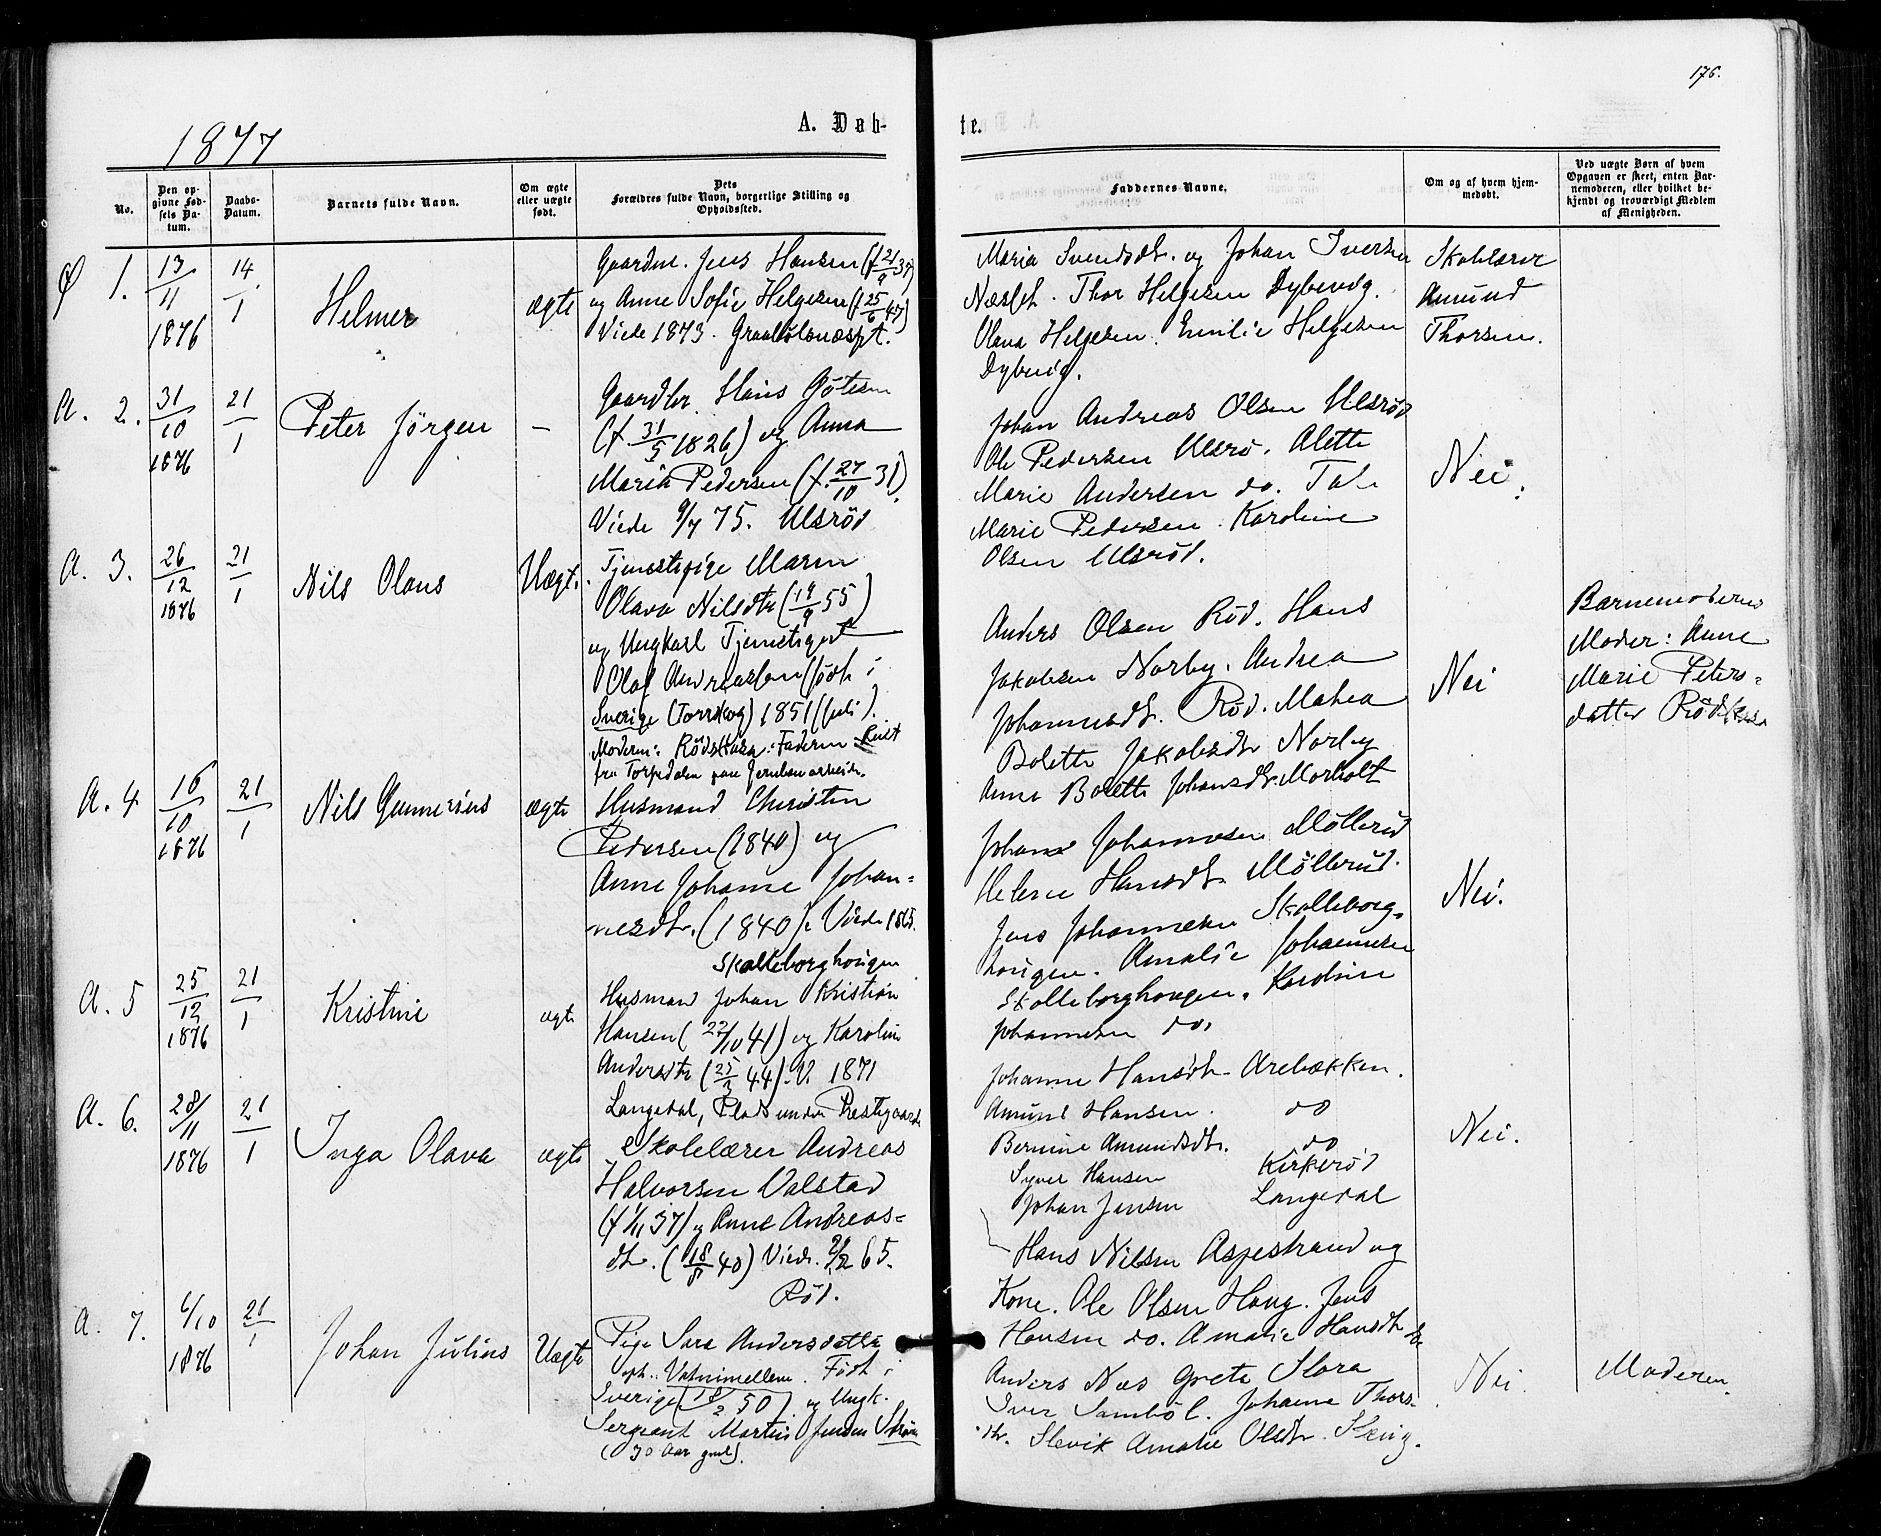 176.
1877
A. Døb-
te.
No.
Den op-
givne Fød-
sels Da-
tum.
Daabs-
Datum.
Barnets fulde Navn.
Om ægte
eller uægte
født.
Dets
Forældres fulde Navn, borgerlige Stilling og
Opholdssted.
Faddernes Navne.
Om og af hvem hjem-
medøbt.
Ved uægte Børn af hvem
Opgaven er skeet, enten Bar-
nemoderen, eller hvilket be-
kjendt og troværdigt Medlem
af Menigheden.
Ø 1.
13/11
1876
14/1
Helmer
ægte
Gaardm. Jens Hansen (f 21/9 37)
og Anne Sofie Helgesen (f 25/6 47)
Viede 1873.
Maria Svendsdt. og Johan Iversen
Næslet. Thor Helgesen Dybevig.
Olava Helgesen. Emilie Helgesen
Dybevig.
Skolelærer
Amund
Thorsen.
A. 2.
31/10
1876
21/1
Peter Jörgen
—
Gaardbr. Hans Götesen
(f. 31/5 1826) og Anna
Maria Pedersen (f. 27/10 31)
Viede 9/7 75. Ulsrød
Johan Andreas Olsen Ulsrød
Ole Pedersen Ulsrø. Alette
Marie Andersen do.
Marie Pedersen. Karoline
Olsen Ulsrød.
Nei.
A. 3.
26/12
1876
21/1
Nils Olaus
Uægt.
Tjenestepige Maren
Olava Nilsdtr (19/9 55)
og Ungkarl Tjenestegut
Olaf Andreassen (född i
Sverige (Torrskog) 1851 (juli).
Moderen: Rødskasa. Faderen Reist
fra Torpedalen paa Jernbanearbeide.
Anders Olsen Rød. Hans
Jakobsen Norby. Andrea
Johannesdt. Rød. Mathea
Bolette Jakobsdtr Norby
Anne Bolette Johansdtr. Morholt
Nei
Barnemoderens
Moder: Anne
Marie Peters-
datter Rødskasa
A. 4
16/10
1876
21/1
Nils Gunnerius
ægte
Husmand Christen
Pedersen (1840) og
Anne Johanne Johan-
nesdtr. (1840). Viede 1865.
Skolleborghougen
Johans Johannesen Møllerud
Helene Hansdtr Møllerud.
Jens Johannesen Skolleborg-
hougen. Amalie Johannesen
Skolleborghougen. Karoline
Johannesen do.
Nei.
A. 5
25/12
1876
21/1
Kristine
ægte
Husmand Johan Kristian
Hansen (22/10 41) og Karoline
Andersdtr (25/3 44). V. 1871
Langedal, Plads under Prestegaarden
Johanne Hansdtr Arebækken.
Amund Hansen. do
Bernine Amundsdtr. do
Syver Hansen Kirkerød
Johan Jensen Langedal
Nei.
A. 6.
28/11
1876
21/1
Inga Olava
ægte
Skolelærer Andreas
Halvorsen Valstad
(f 1/11 37) og Anne Andreas-
dtr. (18/8 40) Viede 65.
Rød.
Hans Nilsen Aspestrand og
Kone. Ole Olsen Houg. Jens
Hansen do. Amalie Hansdtr do
A. 7.
6/10
1876
21/1
Johan Julius
Uægte
Pige Sara Andersdatter
oph. Vatnimellem. Född i
Sverige 50) og Ungk.
Sergeant Martin Jensen Strøm
(30 Aar gml).
Anders Næs Grete Slora
Iver Sambøl. Johanne Thors-
dtr. Slevik Amalie Olsdtr.
Nei.
Moderen.